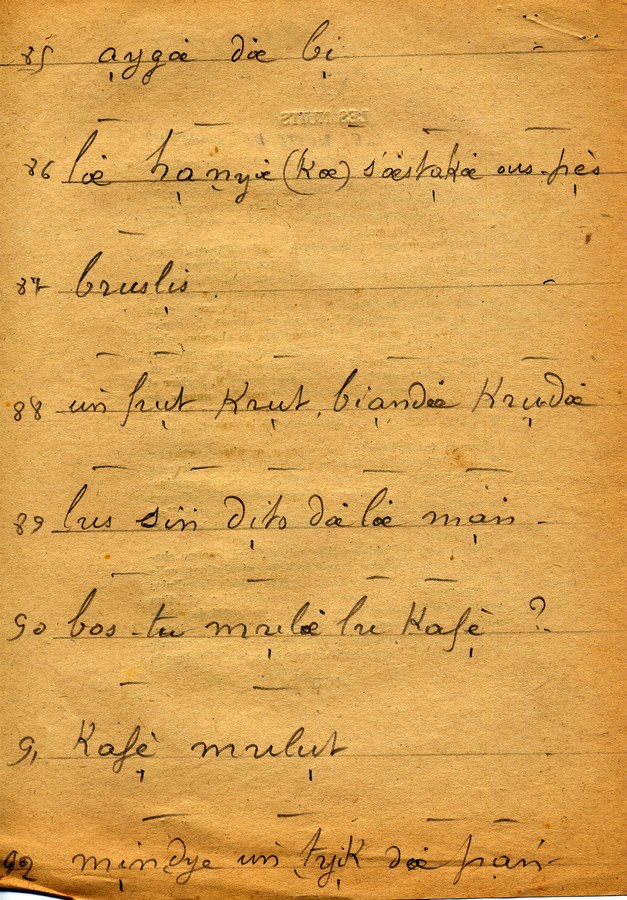 85 aygœ dœ bi
86 lœ hanyœ (kœ) s'œstakœ ous-pès
87 bruslis
88 un frut krut, biandœ krudœ
89 lus sin dito dœ lœ man
90 bos-tu mulœ lu kafè ?
91 kafè mulut
92 mindye un tyik dœ pan